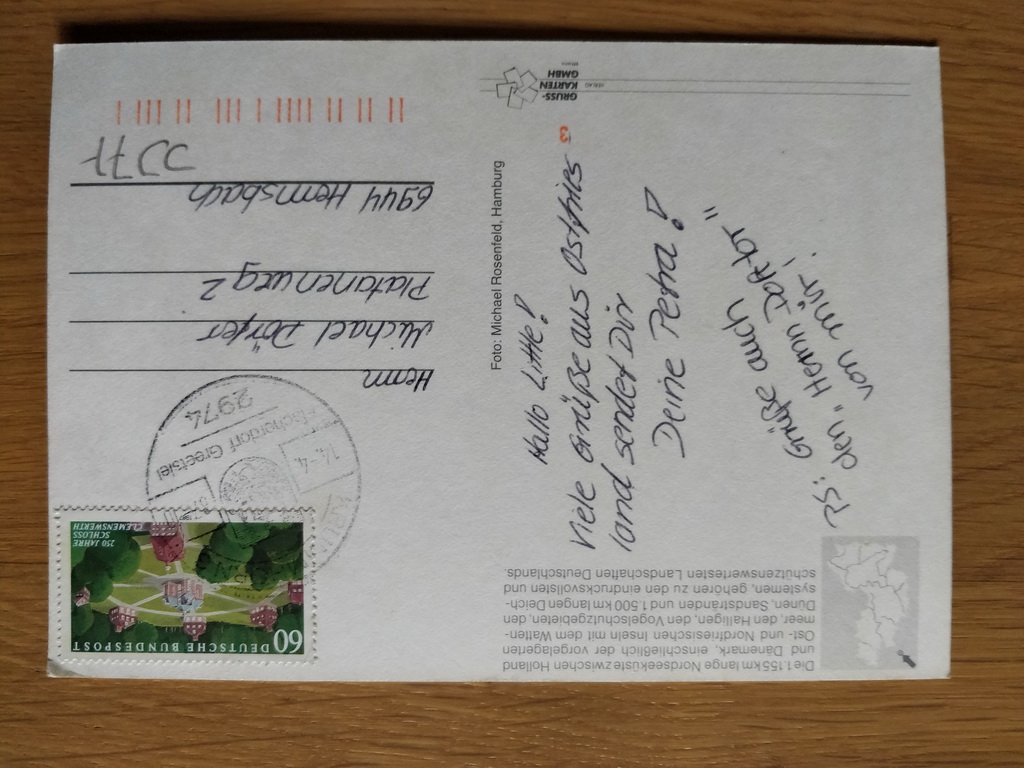 Die 1.155 km lange Nordseeküste zwischen Holland
und Dänemark, einschließlich der vorgelagerten
Ost- und Nordfriesischen Inseln mit dem Watten-
meer, den Halligen, den Vogelschutzgebieten, den
Dünen, Sandstränden und 1.500 km langen Deich-
systemen, gehören zu den eindrucksvollsten und
schützenswertesten Landschaften Deutschlands.
Hallo Little!
Viele Grüße aus Ostfries
land sendet Dir
Deine Petra!
PS: Grüße auch
den "Herrn
von mir!
Foto: Michael Rosenfeld, Hamburg
GRUSS-
KARTEN
GMBH
VERLAG
3
60
DEUTSCHE BUNDESPOST
250 JAHRE
SCHLOSS
CLEMENSWERTH
14.-4.
Fischerdorf Greetsiel
2974
Herrn
Michael Dörfer
Platanenweg 2
6944 Hemsbach